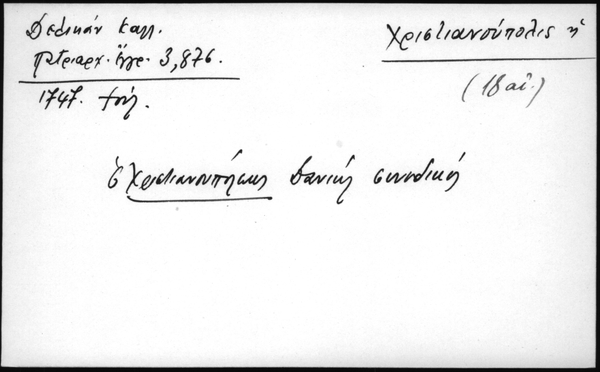 Δελικάν Καλ.
Πατριαρχ. Ἔγγρ. 3,876.
1747. Ἰούλ.
Χριστιανούπολις ἡ
(18 αἰ.)
ὁ Χριστιανουπόλεως συνοδική